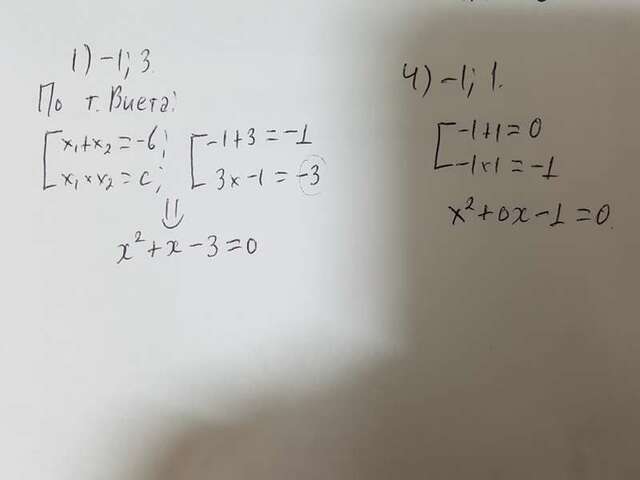 1) -1; 3.
По т. Виета:
[x₁+x₂ = -b; [-1+3 = -1
[x₁×x₂ = c; [3×-1 = -3
⇓
x²+x-3=0
4) -1; 1.
[-1+1=0
[-1×1=-1
x²+0x-1=0